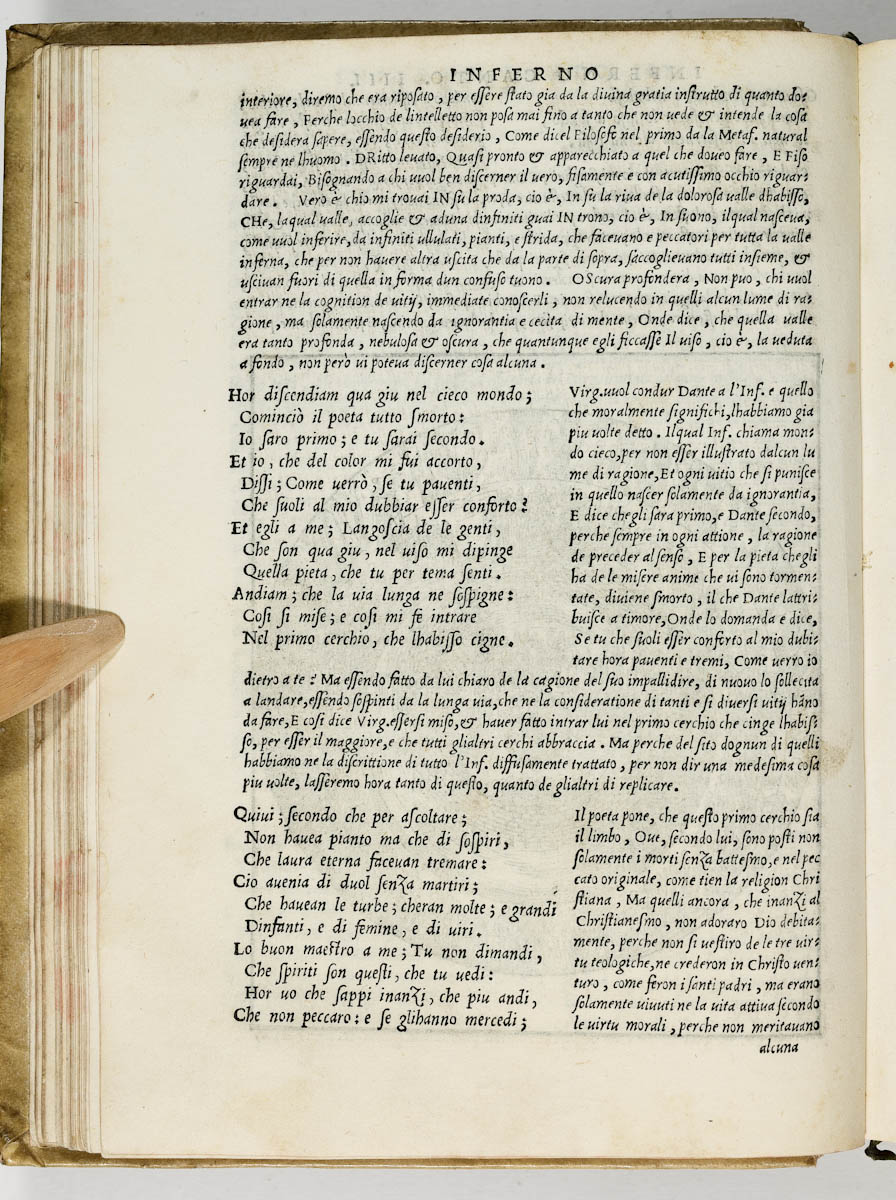 INFERNO
interiore, diremo che era riposato, per essere stato gia da la divina gratia instrutto di quanto do⸗
vea fare, Perche locchio de lintelletto non posa mai fino a tanto che non uede & intende la cosa
che desidera sapere, essendo questo desiderio, Come dicel Filosofo nel primo da la Metaf. natural
sempre ne lhuomo. DRitto leuato, Quasi pronto & apparecchiato a quel che doueo fare, E Fiso
riguardai, Bisognando a chi vuol ben discerner il uero, fisamente e con acutissimo occhio riguar⸗
dare. Vero è chio mi trouai IN su la proda, cio è, In su la riua de la dolorosa ualle dhabisso,
CHe, laqual ualle, accoglie & aduna dinfiniti guai IN trono, cio è, In suono, ilqual nasceua,
come uuol inferire, da infiniti ullulati, pianti, e strida, che faceuano e peccatori per tutta la ualle
inferna, che per non hauere altra uscita che da la parte di sopra, saccoglieuano tutti insieme, &
usciuan fuori di quella in forma dun confuso tuono. OScura profondera, Non puo, chi uuol
entrar ne la cognition de uitij, immediate conoscerli, non relucendo in quelli alcun lume di ra⸗
gione, ma solamente nascendo da ignorantia e cecita di mente, Onde dice, che quella ualle
era tanto profonda, nebulosa & oscura, che quantunque egli ficcasse Il uiso, cio è, la ueduta
a fondo, non però ui poteua discerner cosa alcuna.
Hor discendiam qua giu nel cieco mondo;
Cominciò il poeta tutto smorto:
Io saro primo; e tu sarai secondo.
Et io, che del color mi fui accorto,
Dissi; Come uerrò, se tu pauenti,
Che suoli al mio dubbiar esser conforto?
Et egli a me; Langoscia de le genti,
Che son qua giu, nel uiso mi dipinge
Quella pieta, che tu per tema senti.
Andiam; che la uia lunga ne sospigne:
Cosi si mise; e cosi mi fe intrare
Nel primo cerchio, che lhabisso cigne.
Virg. uuol condur Dante a l'Inf. e quello
che moralmente significhi, lhabbiamo gia
piu uolte detto. Ilqual Inf. chiama mon⸗
do cieco, per non esser illustrato dalcun lu
me di ragione, Et ogni uitio che si punisce
in quello nascer solamente da ignorantia,
E dice chegli sara primo, e Dante secondo,
perche sempre in ogni attione, la ragione
de preceder al senso, E per la pieta chegli
ha de le misere anime che ui sono tormen⸗
tate, diuiene smorto, il che Dante lattri⸗
buisce a timore, Onde lo domanda e dice,
Se tu che suoli esser conforto al mio dubi⸗
tare hora pauenti e tremi, Come uerro io
dietro a te? Ma essendo fatto da lui chiaro de la cagione del suo impallidire, di nuouo lo sollecita
a landare, essendo sospinti da la lunga uia, che ne la consideratione di tanti e si diuersi uitij hāno
da fare, E cosi dice Virg. essersi miso, & hauer fatto intrar lui nel primo cerchio che cinge lhabis⸗
so, per esser il maggiore, e che tutti glialtri cerchi abbraccia. Ma perche del sito dognun di quelli
habbiamo ne la discrittione di tutto l'Inf. diffusamente trattato, per non dir una medesima cosa
piu uolte, lasseremo hora tanto di questo, quanto de glialtri di replicare.
Quiui; secondo che per ascoltare;
Non hauea pianto ma che di sospiri,
Che laura eterna faceuan tremare:
Cio auenia di duol senza martiri;
Che hauean le turbe; cheran molte; e grandi
Dinfanti, e di femine, e di uiri.
Lo buon maestro a me; Tu non dimandi,
Che spiriti son questi, che tu uedi:
Hor uo che sappi inanzi, che piu andi,
Che non peccaro: e se glihanno mercedi;
Il poeta pone, che questo primo cerchio sia
il limbo, Oue, secondo lui, sono posti non
solamente i morti senza battesmo, e nel pec
cato originale, come tien la religion Chri
stiana, Ma quelli ancora, che inanzi al
Christianesmo, non adoraro Dio debita⸗
mente, perche non si uestiro de le tre uir⸗
tu teologiche, ne crederon in Christo uen⸗
turo, come feron i santi padri, ma erano
solamente uiuuti ne la uita attiua secondo
le uirtu morali, perche non meritauano
alcuna